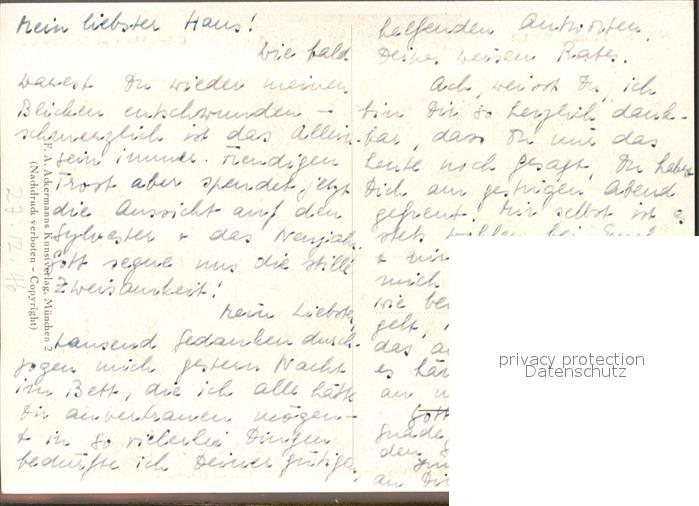 Mein liebster Hans!
Wie bald
warest Du wieder meinen
Blicken entschwunden –
schmerzlich ist das Allein-
sein immer. Freudigen
Trost aber spendet jetzt
die Aussicht auf den
Sylvester + das Neujahr.
Gott segne uns die stille
Zweisamkeit!
Mein Liebster,
tausend Gedanken durch-
zogen mich gestern Nacht
im Bett, die ich alle hätte
Dir anvertrauen mögen –
+ in so vielerlei Dingen
bedürfte ich Deiner gütigen,
helfenden Antworten,
Deines weisen Rates.
Ach, weisst Du, ich
bin Dir so herzlich dank-
bar, dass Du mir das
heute noch gesagt, Du habest
Dich am gestrigen Abend
gefreut. Mir selbst ist es
stets
mich
wie
gelt,
das
es
an
Gott
Gnade
den
an
F. A. Ackermanns Kunstverlag, München 2
(Nachdruck verboten – Copyright)
27.12.46
privacy protection
Datenschutz